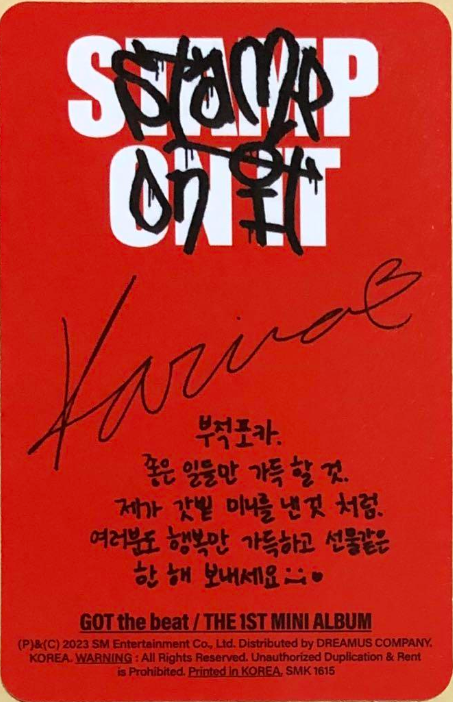 STAMP
ON IT
Stamp
on it
Karina
부적포카.
좋은 일들만 가득 할 것.
제가 갓빝 미니를 낸 것 처럼.
여러분도 행복만 가득하고 선물같은
한 해 보내세요
GOT the beat / THE 1ST MINI ALBUM
(P)&(C) 2023 SM Entertainment Co., Ltd. Distributed by DREAMUS COMPANY.
KOREA. WARNING : All Rights Reserved. Unauthorized Duplication & Rent
is Prohibited. Printed in KOREA. SMK 1615